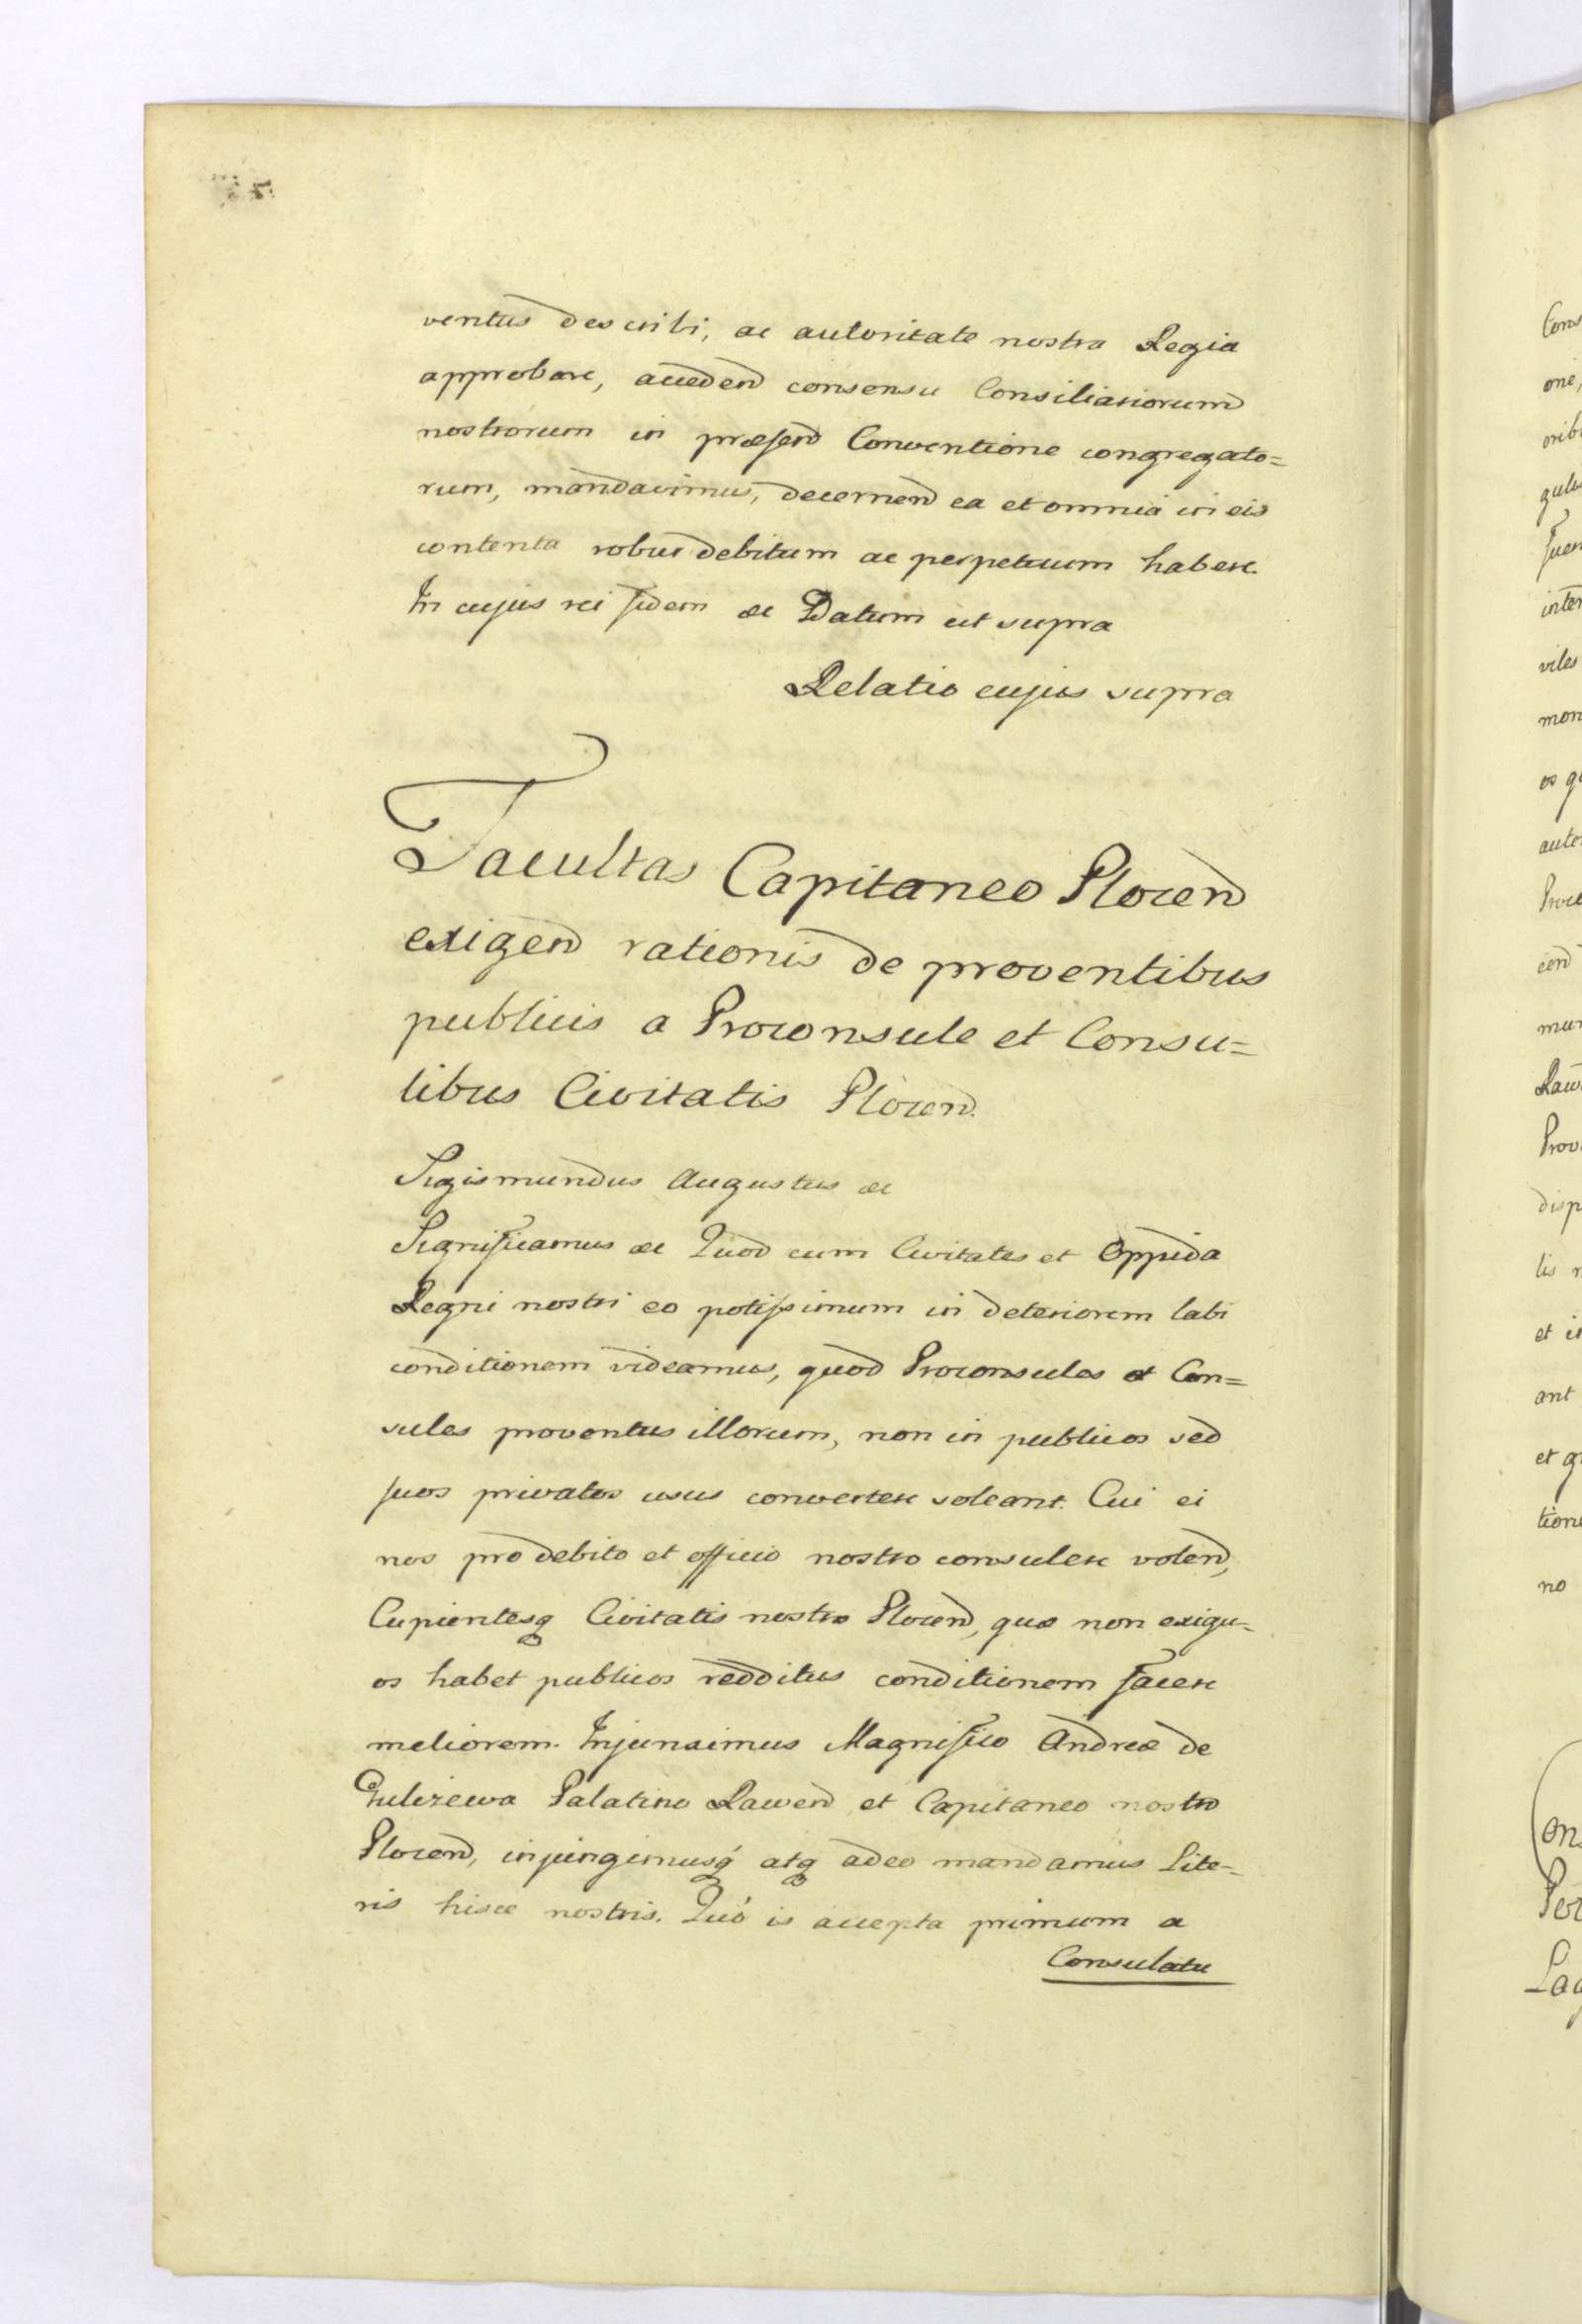 ventus describi, ac autoritate nostra Regia
approbare, acceden consensu Consiliariorum
nostrorum in præsen Conventione congregato=
rum, mandavimus, decernen ea et omnia in eis
contenta robur debitum ac perpetuum habere.
In cujus rei fidem &c Datum ut supra
Relatio cujus supra
Facultas Capitaneo Plocen
exigen rationis de proventibus
publicis a Proconsule et Consu=
libus Civitatis Plocen.
Sigismundus Augustus &c
Significamus &c Quod cum Civitates et Oppida
Regni nostri eo potissimum in deteriorem labi
conditionem videamus, quod Proconsules et Con=
sules proventus illorum, non in publicos sed
suos privatos usus convertere soleant. Cui ei
nos pro debito et officio nostro consulere volen,
Cupientesq Civitatis nostræ Plocen, quæ non exigu=
os habet publicos redditus conditionem facere
meliorem. Injunximus Magnifico Andreæ de
Palatino Rawen et Capitaneo nostro
Plocen, injungimusq atq adeo mandamus Lite=
ris hisce nostris. Quó is accepta primum a
Consulatu
Cons
one,
orib
inter
viles
mon
os q
auto
Proc
cen
mun
Raw
Prov
disp
lis n
et i
ant
et q
tion
no